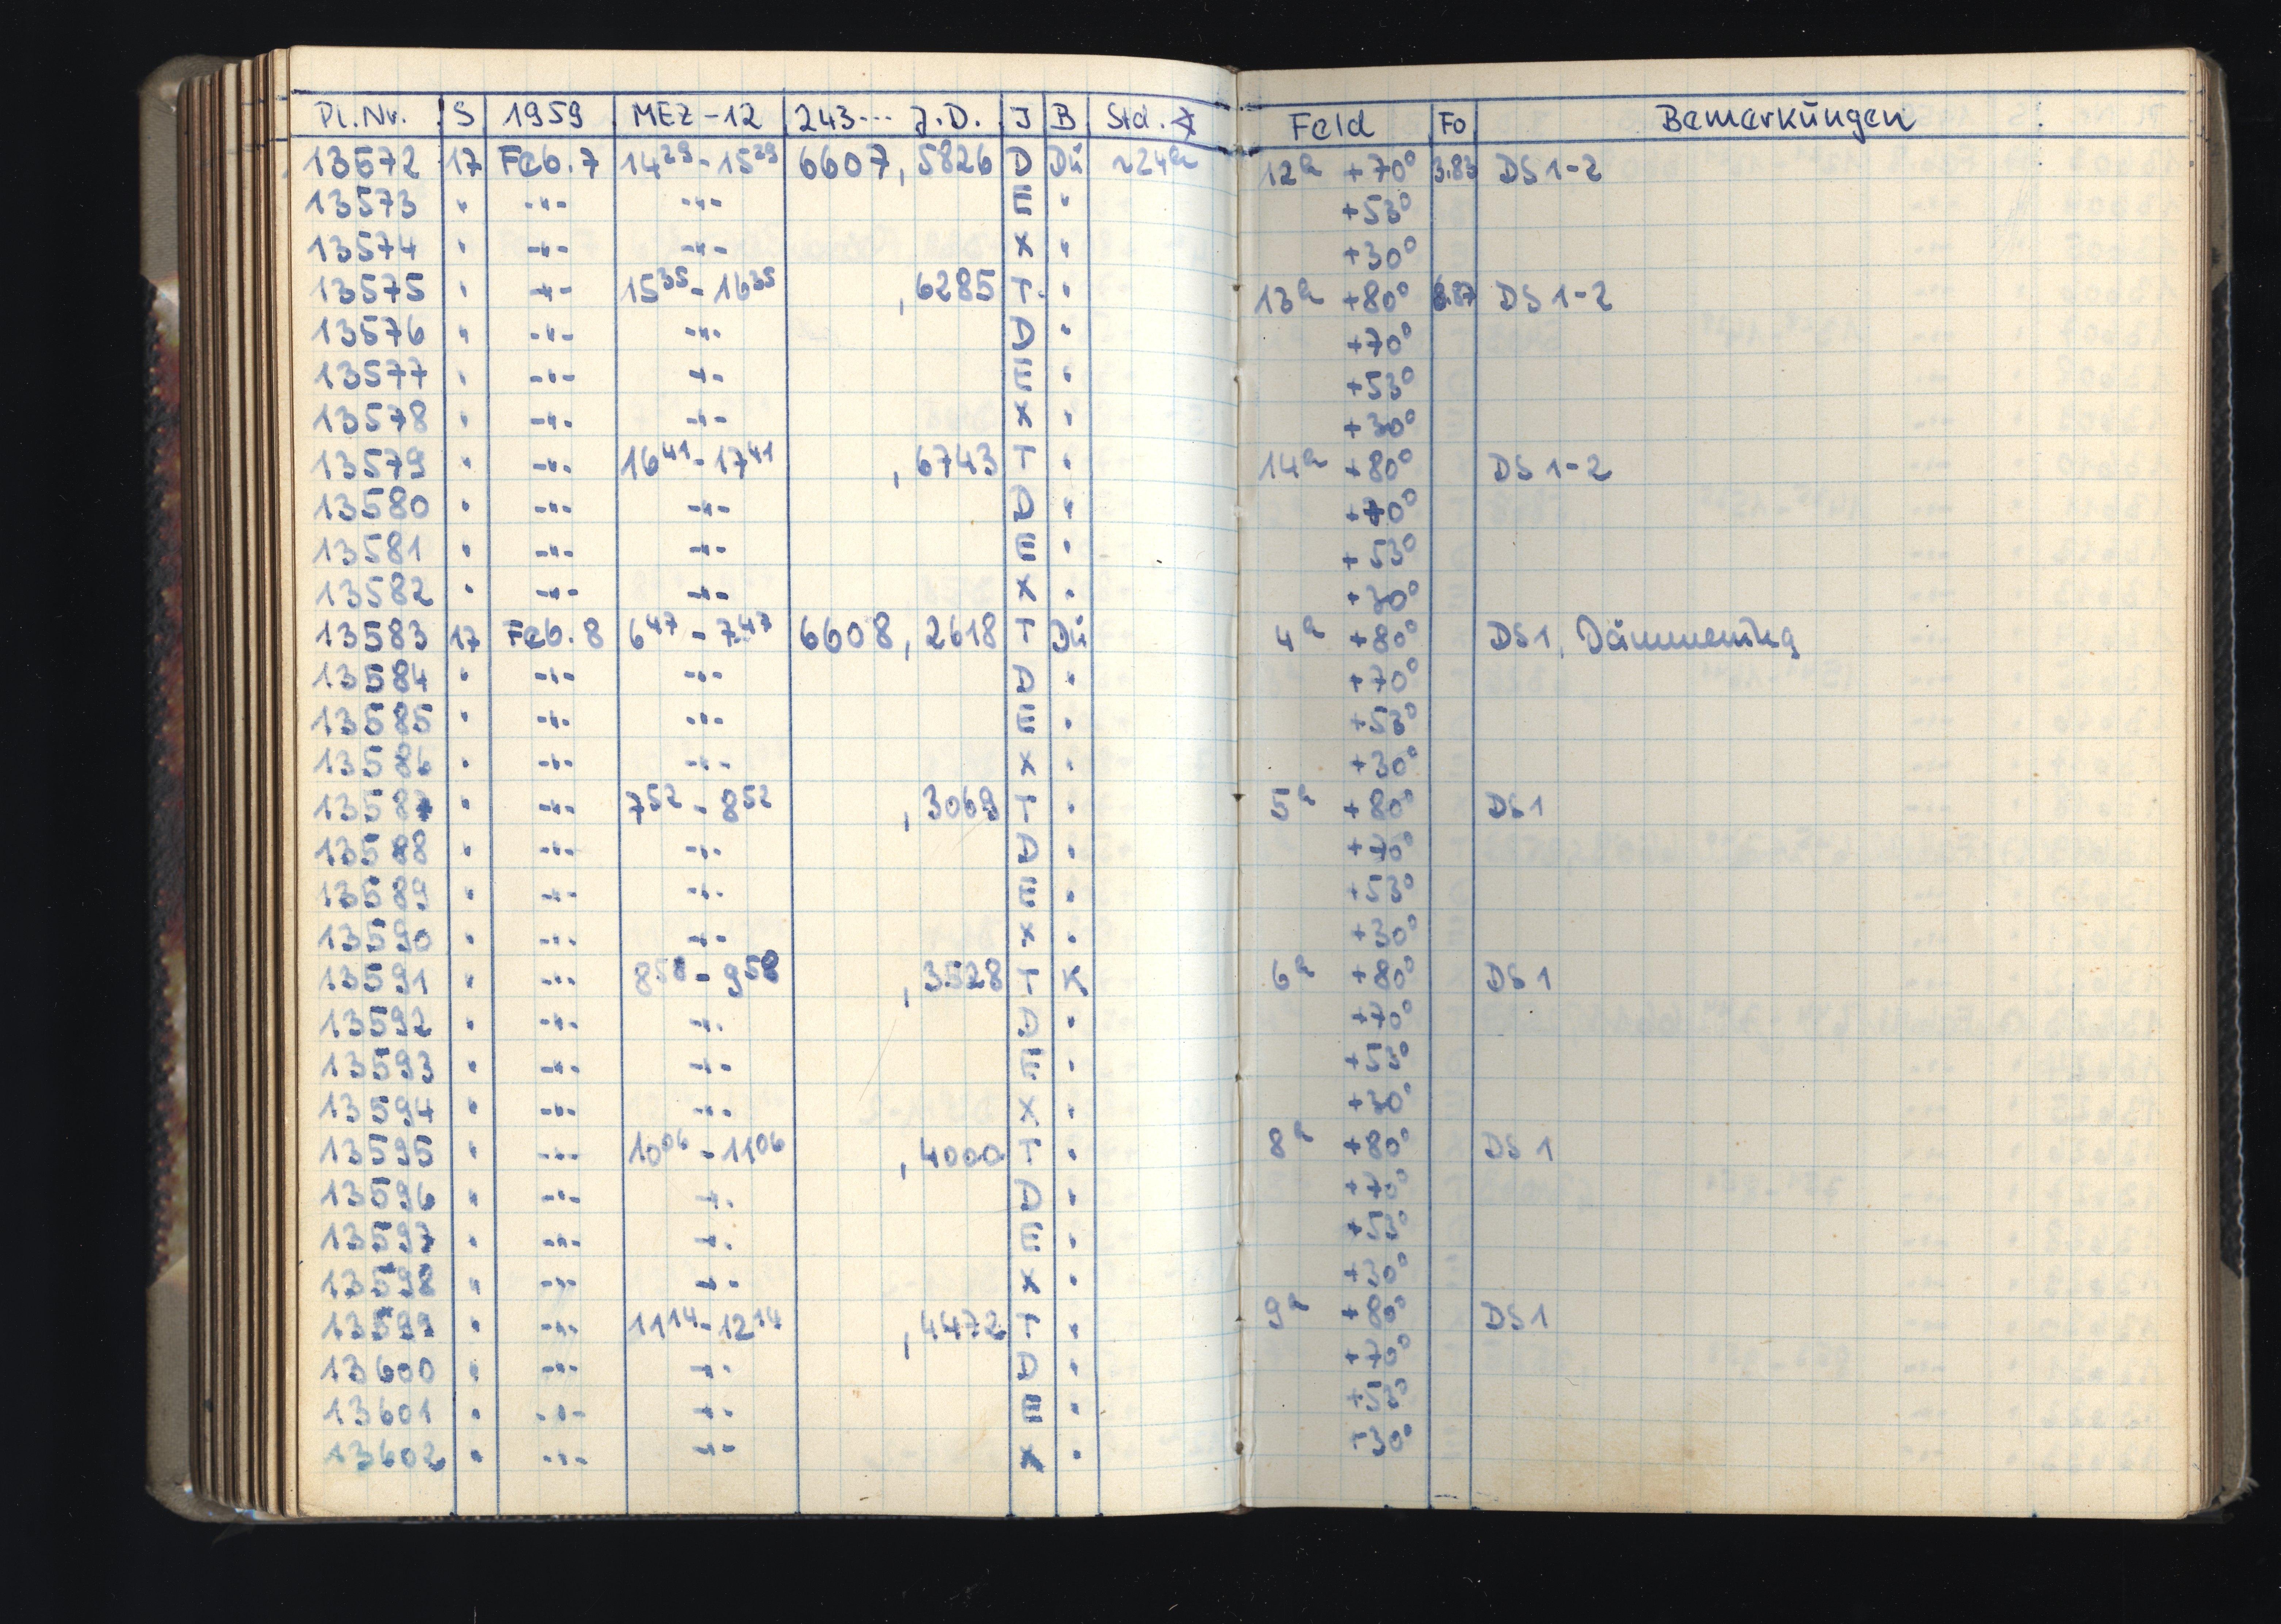 Pl.Nr. S 1959 MEZ-12 243... J.D. J B Std. ∡ Feld Fo Bemerkungen
13572 17 Feb.7 14²⁹-15²⁹ 6607,5826 D Dü ~24ʰ 12ʰ +70° 3.83 DS 1-2
13573 " -"- -"- E " +53°
13574 " -"- -"- X " +30°
13575 " -"- 15³⁵-16³⁵ ,6285 T " 13ʰ +80° DS 1-2
13576 " -"- -"- D " +70°
13577 " -"- -"- E " +53°
13578 " -"- -"- X " +30°
13579 " -"- 16⁴¹-17⁴¹ ,6743 T " 14ʰ +80° DS 1-2
13580 " -"- -"- D " +70°
13581 " -"- -"- E " +53°
13582 " -"- -"- X " +30°
13583 17 Feb.8 6⁴⁷-7⁴⁷ 6608,2618 T Dü 4ʰ +80° DS1, Dämmerung
13584 " -"- -"- D " +70°
13585 " -"- -"- E " +53°
13586 " -"- -"- X " +30°
13587 " -"- 7⁵²-8⁵² ,3069 T " 5ʰ +80° DS1
13588 " -"- -"- D " +70°
13589 " -"- -"- E " +53°
13590 " -"- -"- X " +30°
13591 " -"- 8⁵⁸-9⁵⁸ ,3528 T K 6ʰ +80° DS1
13592 " -"- -"- D " +70°
13593 " -"- -"- E " +53°
13594 " -"- -"- X " +30°
13595 " -"- 10⁰⁶-11⁰⁶ ,4000 T " 8ʰ +80° DS1
13596 " -"- -"- D " +70°
13597 " -"- -"- E " +53°
13598 " -"- -"- X " +30°
13599 " -"- 11¹⁴-12¹⁴ ,4472 T " 9ʰ +80° DS1
13600 " -"- -"- D " +70°
13601 " -"- -"- E " +53°
13602 " -"- -"- X " +30°